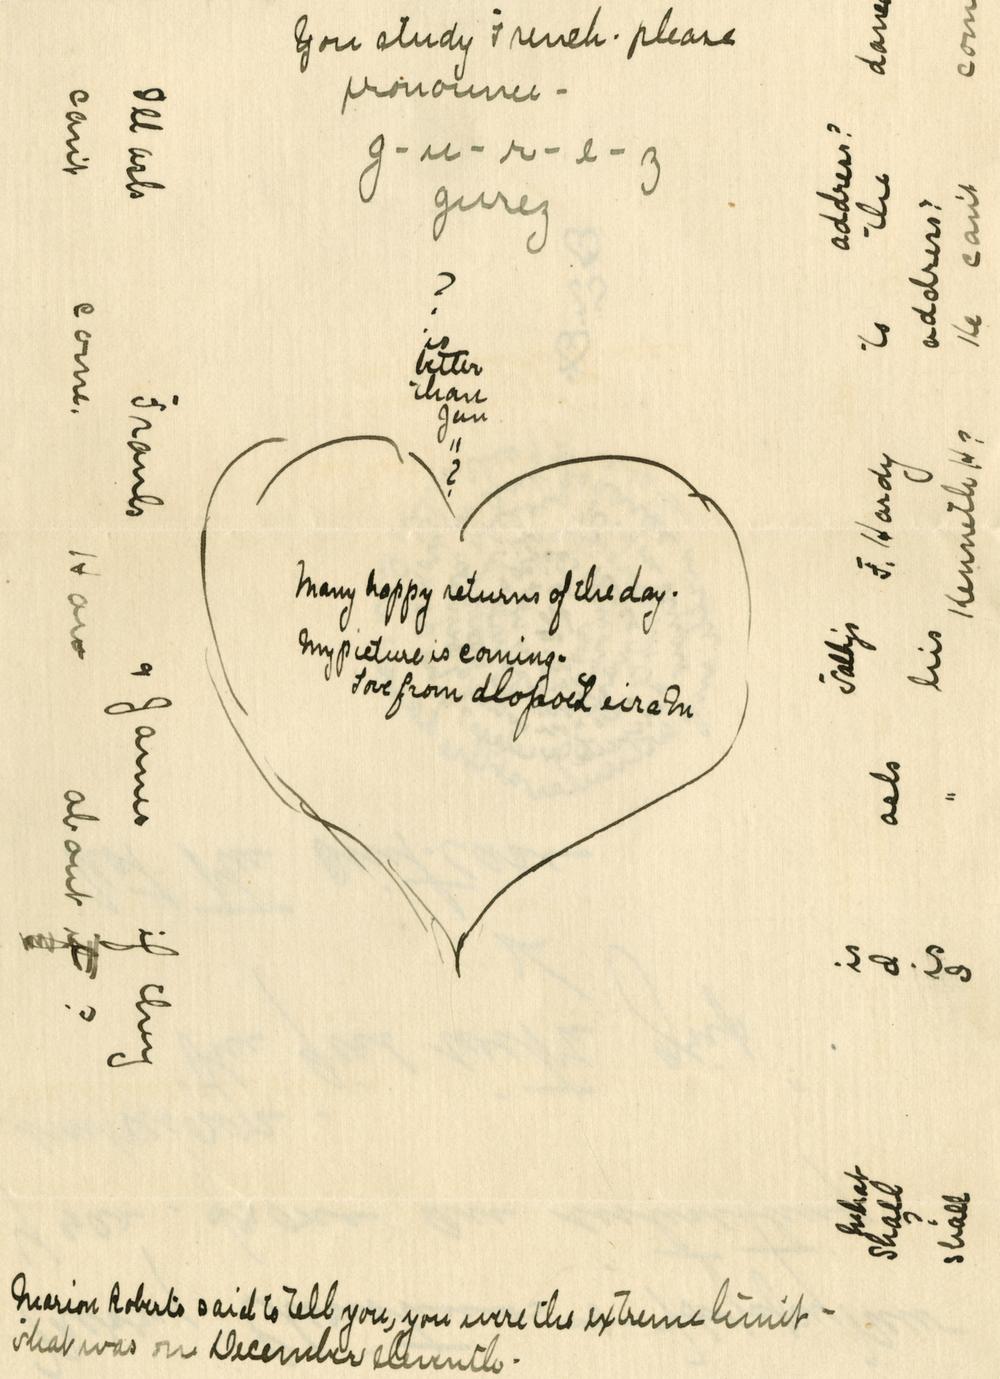 You study French. please
pronounce -
g-u-r-e-z
gurez
?
is
better
than
"
?
Many happy returns of the day.
My picture is coming.
Love from dlopoeL eiraM
I'll ask Frank & James if they
can't come. How about it ?
What is Sally's address?
Shall I ask F. Hardy is the
" is " his address?
Shall I ask Kenneth H? He can't
Marion Roberts said to tell you, you were the extreme limit -
that was on December eleventh.